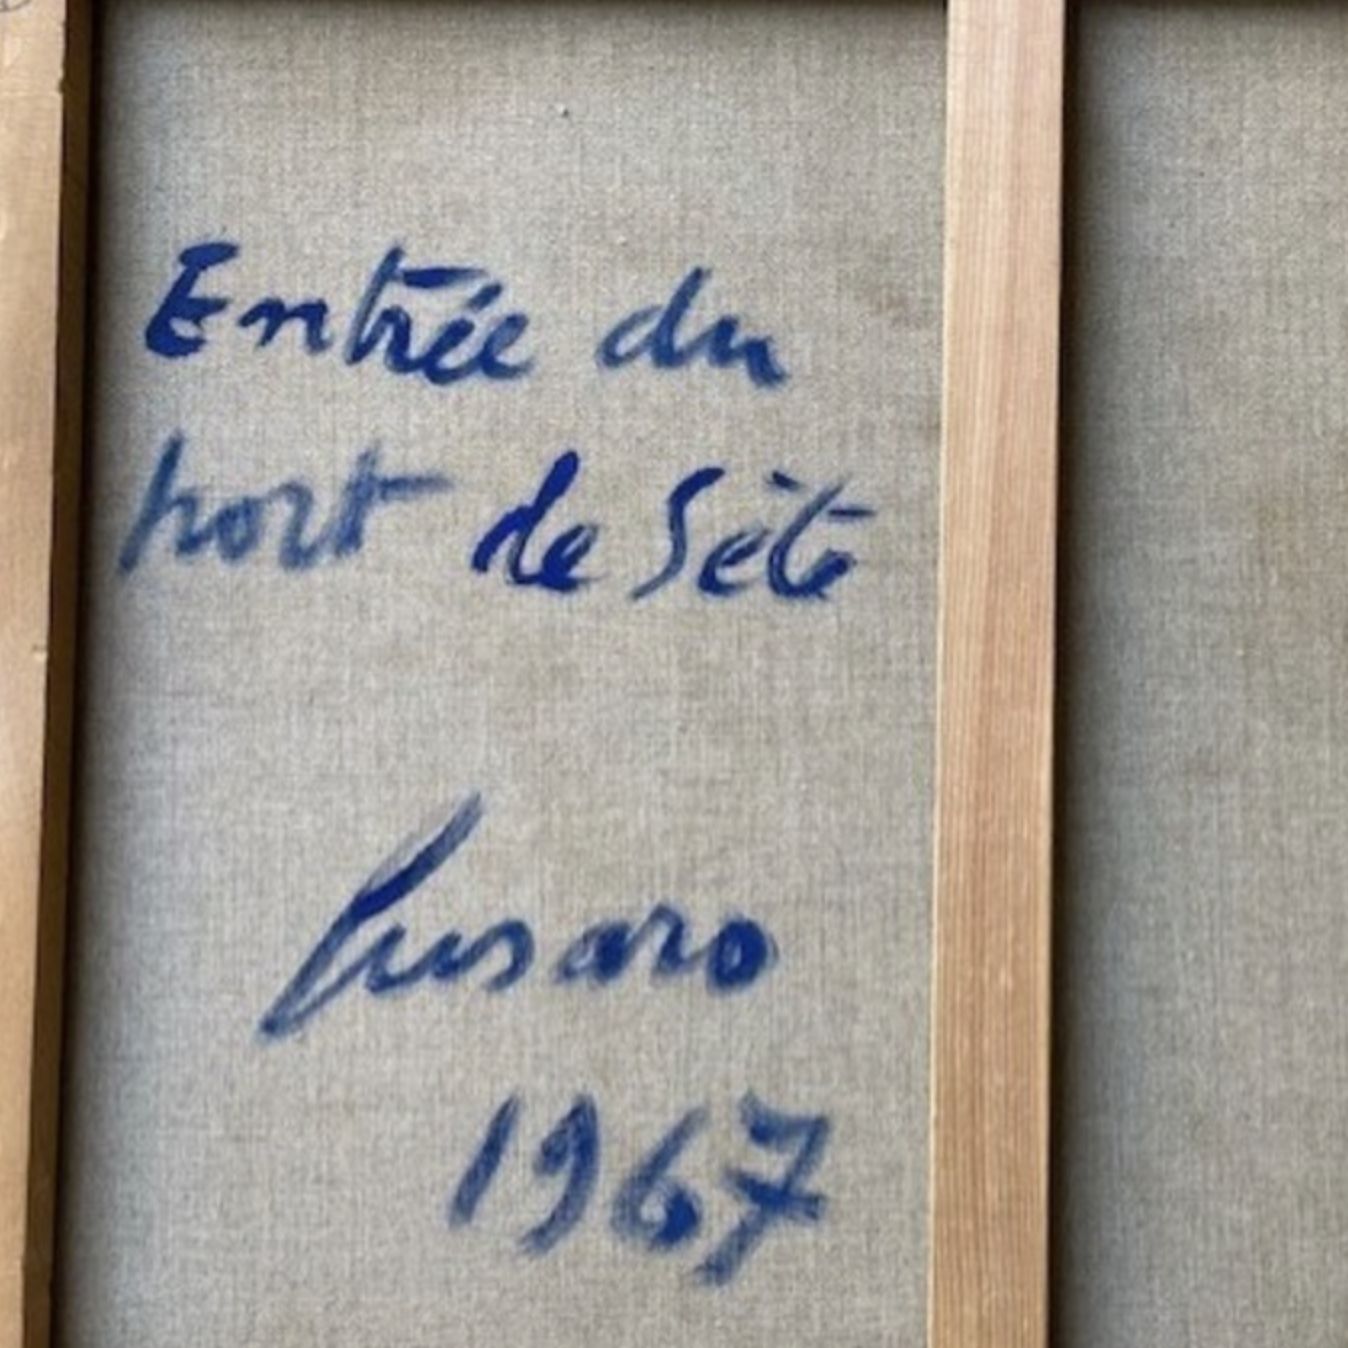 Entrée du
port de Sète
Fusaro
1967